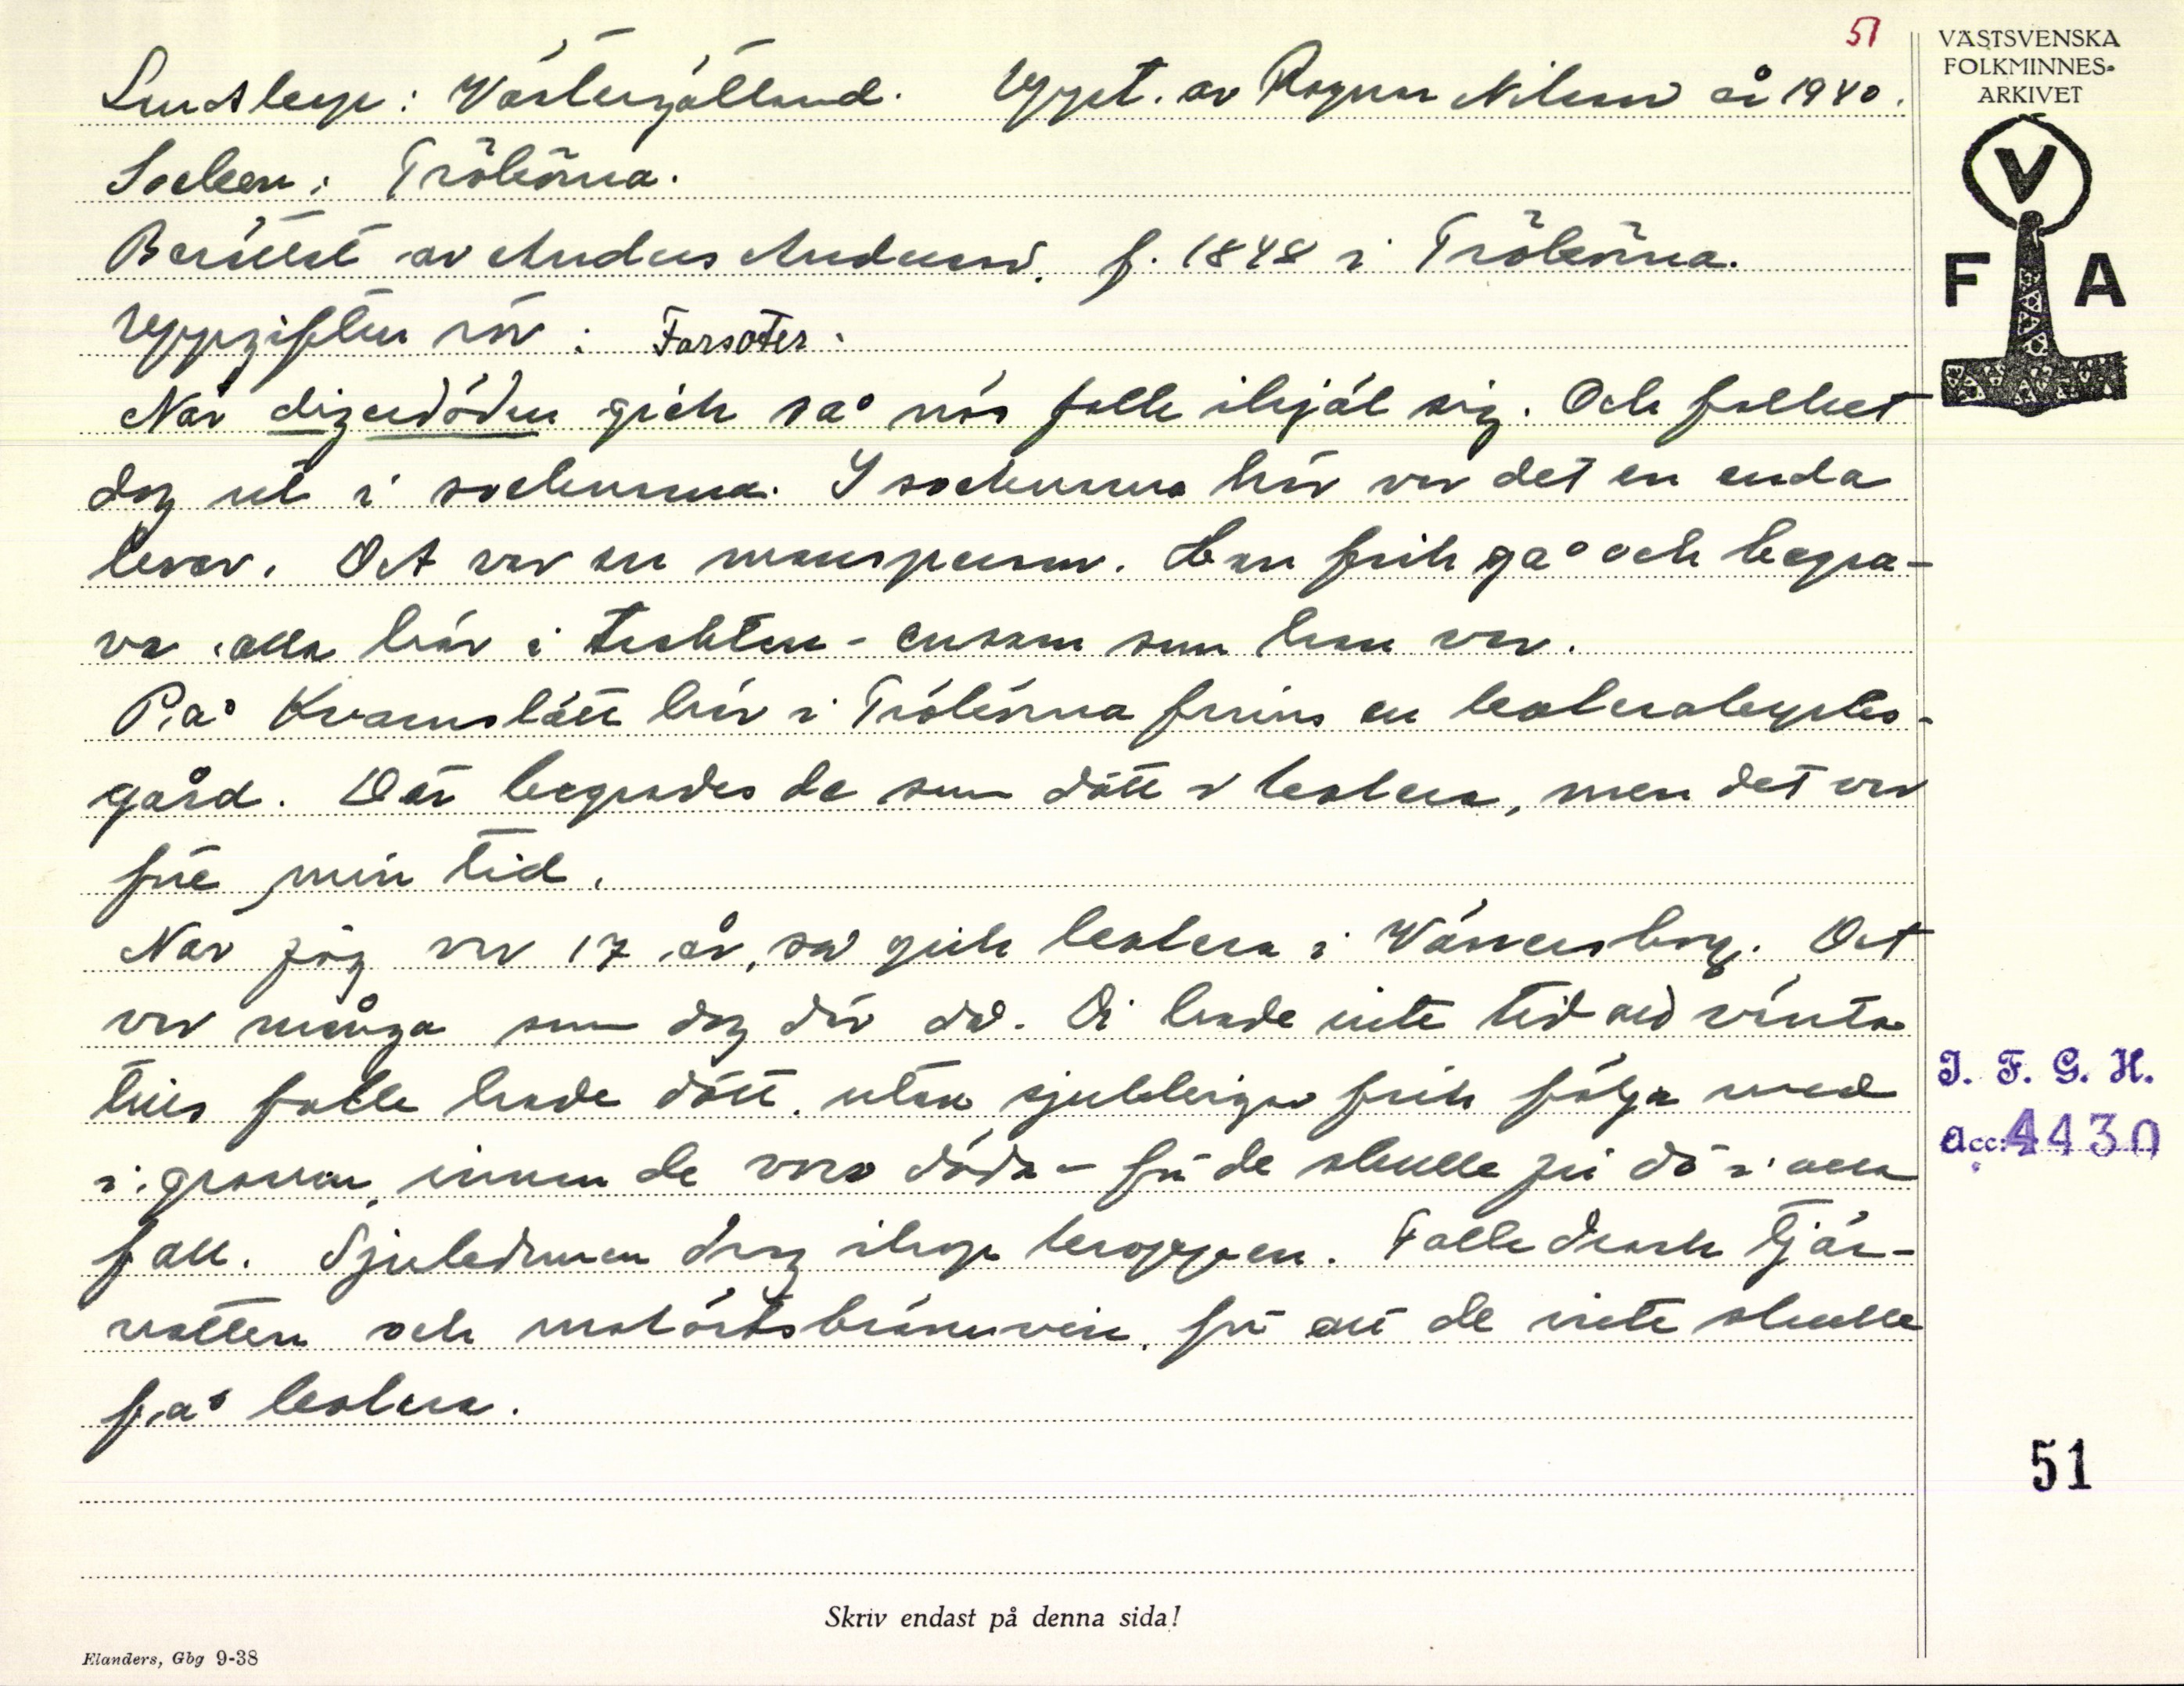 51
VÄSTSVENSKA
FOLKMINNES-
ARKIVET
V
F A
Landskap: Västergötland. Uppt. av Ragnar Nilsson år 1940.
Socken: Tråkörna.
Berättat av Anders Andersson, f. 1848 i Tråkörna.
Uppgiften rör: Farsoter.
När digerdöden gick så nös folk ihjäl sig. Och folket
dog ut i socknarna. I socknarna här var det en enda
kvar. Det var en mansperson. Han fick gå och begra-
va alla här i trakten - ensam som han var.
På Kvarnslätt här i Tråkörna finns en kolerakyrko-
gård. Där begravdes de som dött i kolera, men det var
före min tid.
När jag var 17 år, så gick kolera i Vänersborg. Det
var många som dog där då. Di hade inte tid att vänta
tills folk hade dött, utan sjuklingar fick följa med
i graven, innan de voro döda - för de skulle ju dö i alla
fall. Sjukdomen drog ihop kroppen. Folk drack tjär-
vatten och malörtsbrännvin, för att de inte skulle
få kolera.
I. F. G. H.
Acc: 4430
51
Skriv endast på denna sida!
Elanders, Gbg 9-38